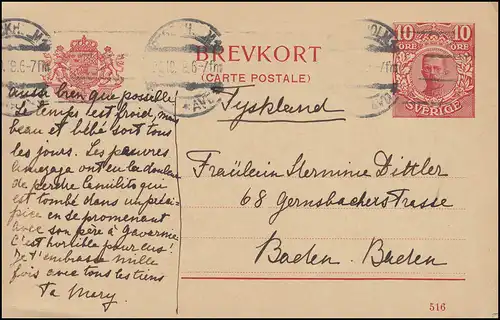 10 ÖRE
10 ÖRE
SVERIGE
BREVKORT
(CARTE POSTALE)
6-7fm
aussi bien que possible!
Le temps est froid, mais
beau et bébé sort tous
les jours. Les pauvres
ont eu la douleur
de perdre qui
est tombé dans un préci-
pice en se promenant
avec son père à Gavarnie
C'est horrible pour eus!
Je t'embrasse mille
fois avec tous les tiens
Ta Mary.
Tyskland
Fräulein Hermine Dittler
68 Gernsbacherstrasse
Baden-Baden
516